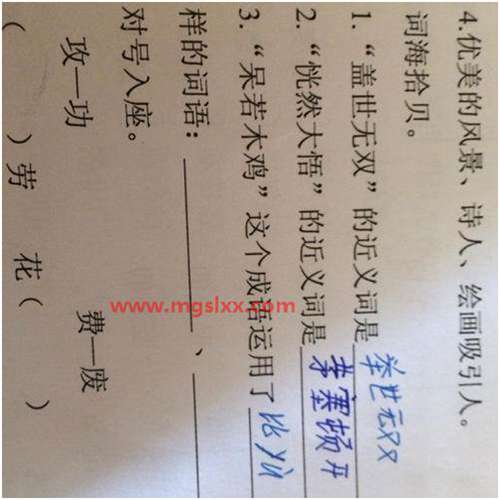 4.优美的风景、诗人、绘画吸引人。
词海拾贝。
1.“盖世无双”的近义词是举世无双
2.“恍然大悟”的近义词是茅塞顿开
3.“呆若木鸡”这个成语运用了比yù
样的词语：________、________
对号入座。
攻—功 费—废
( )劳 花( )
www.mgslxx.com